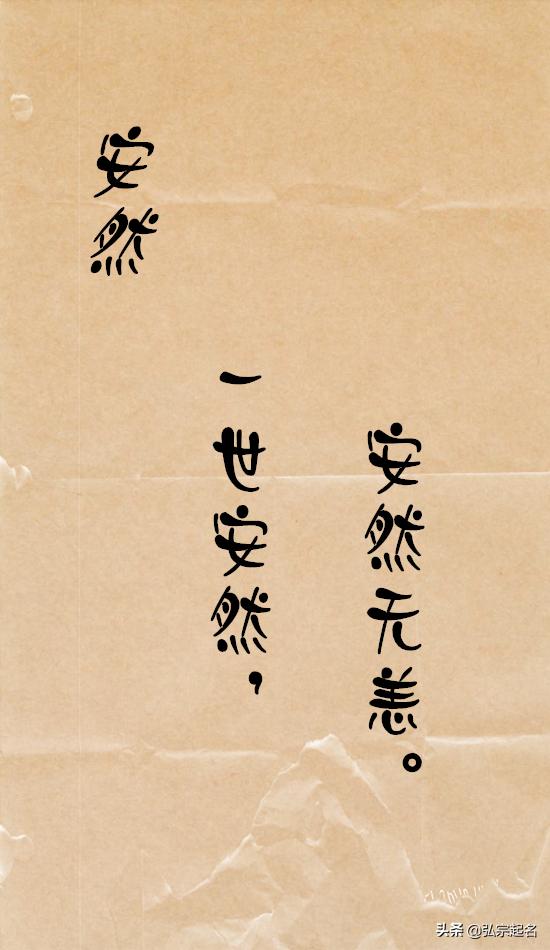 安然
一世安然，
安然无恙。
头条 @弘宗起名